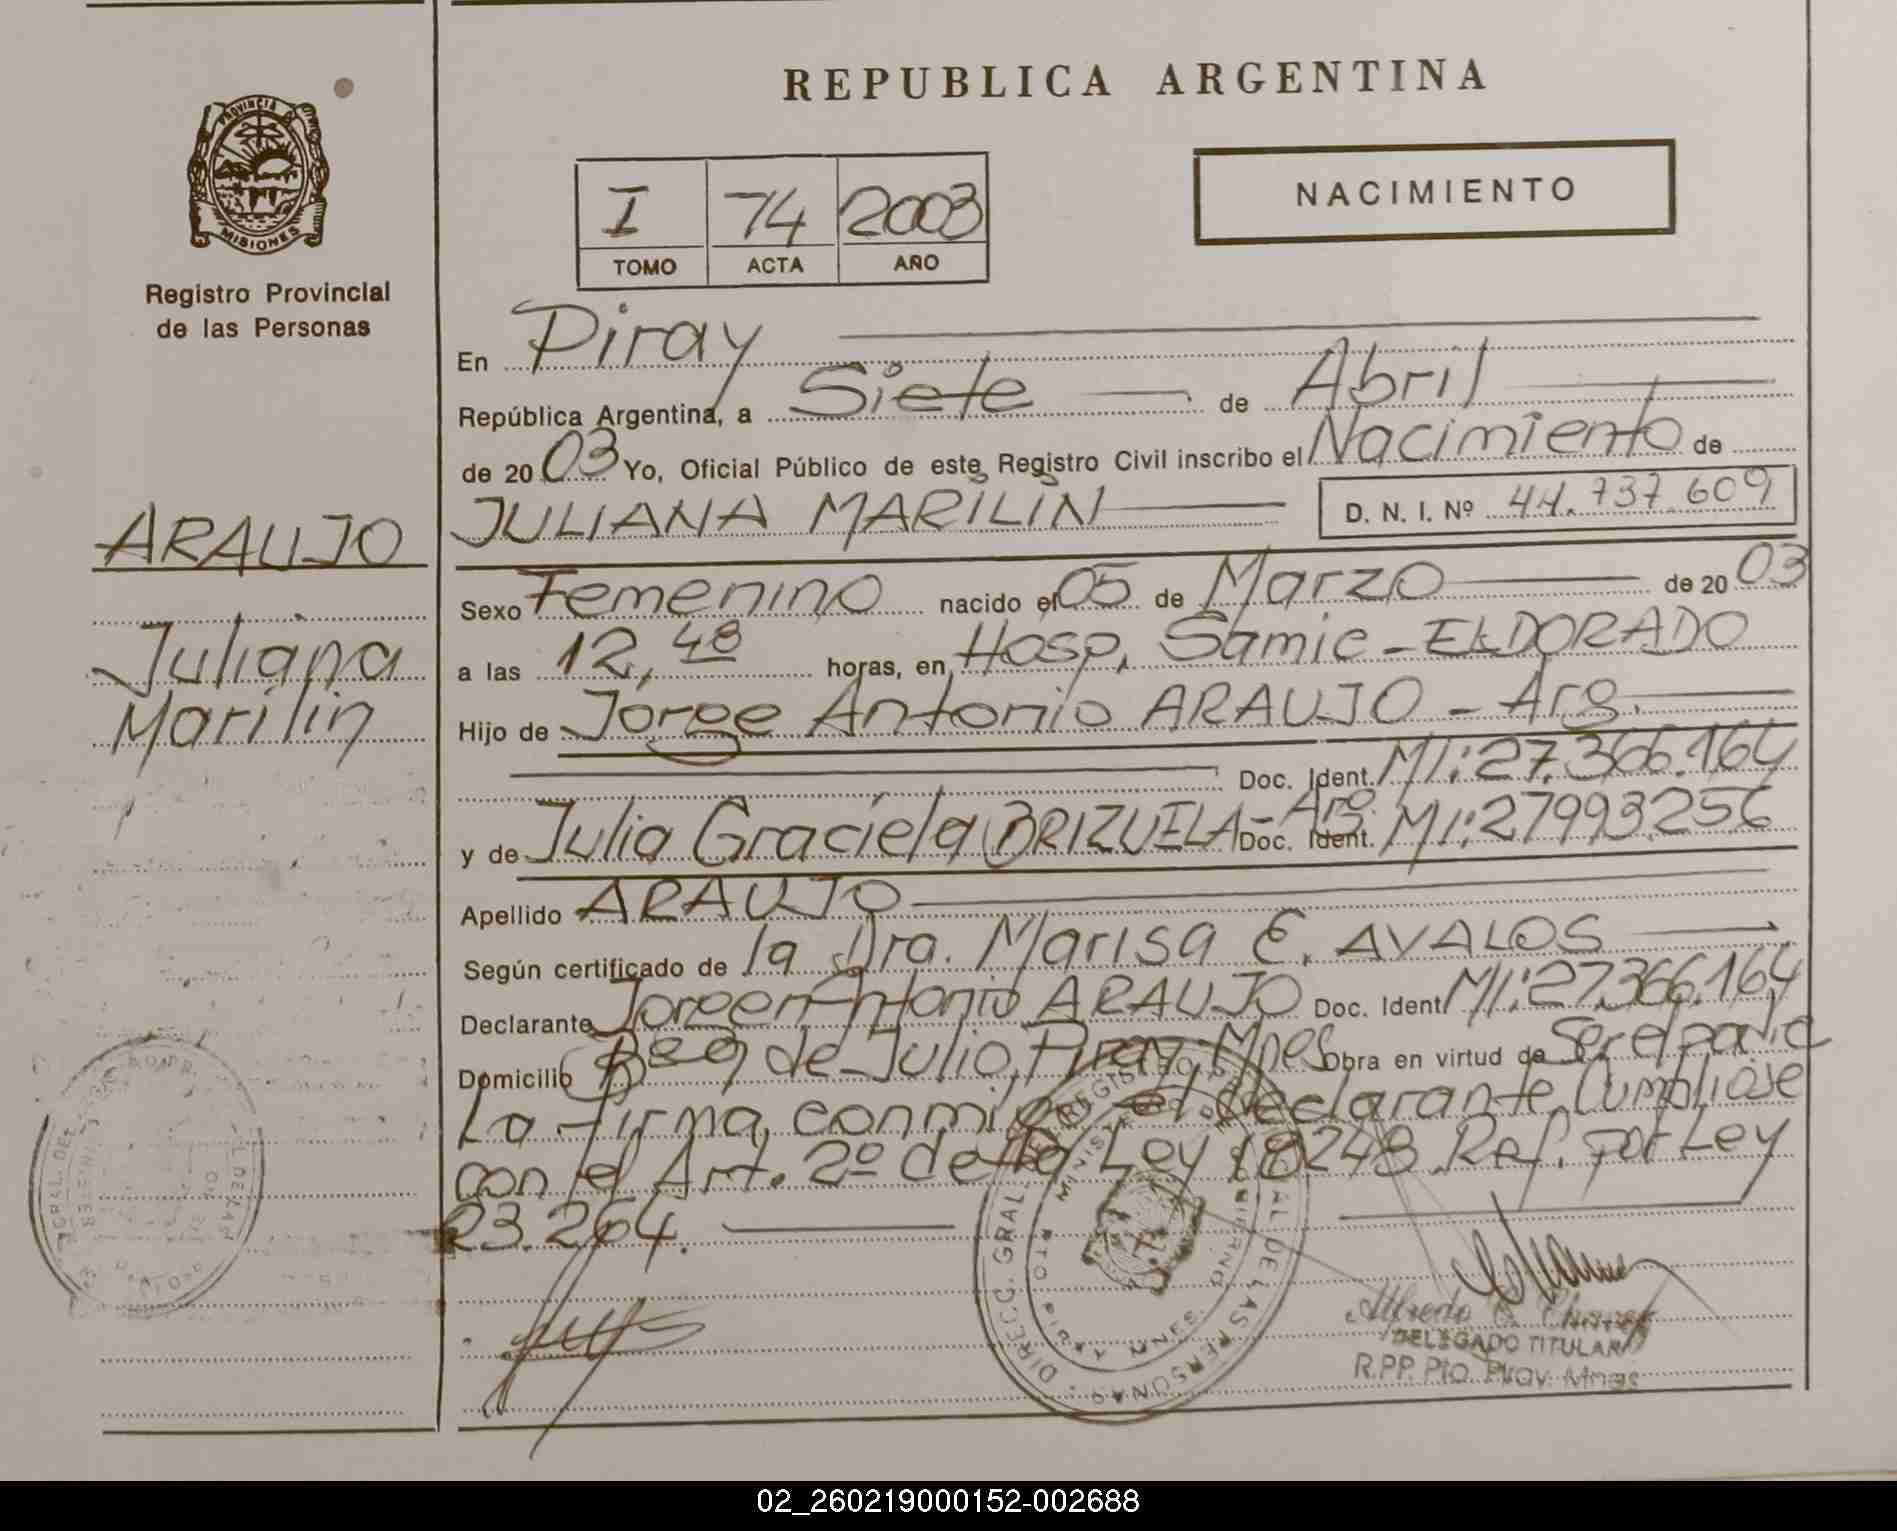 REPUBLICA ARGENTINA
PROVINCIA
MISIONES
Registro Provincial
de las Personas
I 74 2003
TOMO ACTA AÑO
NACIMIENTO
En Piray
República Argentina, a Siete de Abril
de 2003 Yo, Oficial Público de este Registro Civil inscribo el Nacimiento de
JULIANA MARILIN D. N. I. Nº 44.737.609
ARAUJO
Juliana
Marilin
Sexo Femenino nacido el 05 de Marzo de 2003
a las 12,48 horas, en Hosp. Samic - ELDORADO
Hijo de Jorge Antonio ARAUJO - Arg.
Doc. Ident. MI: 27.366.164
y de Julia Graciela BRIZUELA - Arg. Doc. Ident. MI: 27993.256
Apellido ARAUJO
Según certificado de la Dra. Marisa E. AVALOS
Declarante Antonio ARAUJO Doc. Ident. MI: 27.366.164
Domicilio Bº 9 de Julio, Piray - Mnes Obra en virtud de
La firma conmigo el declarante Cumpliose
con el Art. 2º de la Ley 18248 Ref. por Ley
23.264.
DIRECC. GRAL. DE LAS PERSONAS
Alfredo C. Chavez
DELEGADO TITULAR
R.P.P. Pto. Piray. Mnes
02_260219000152-002688